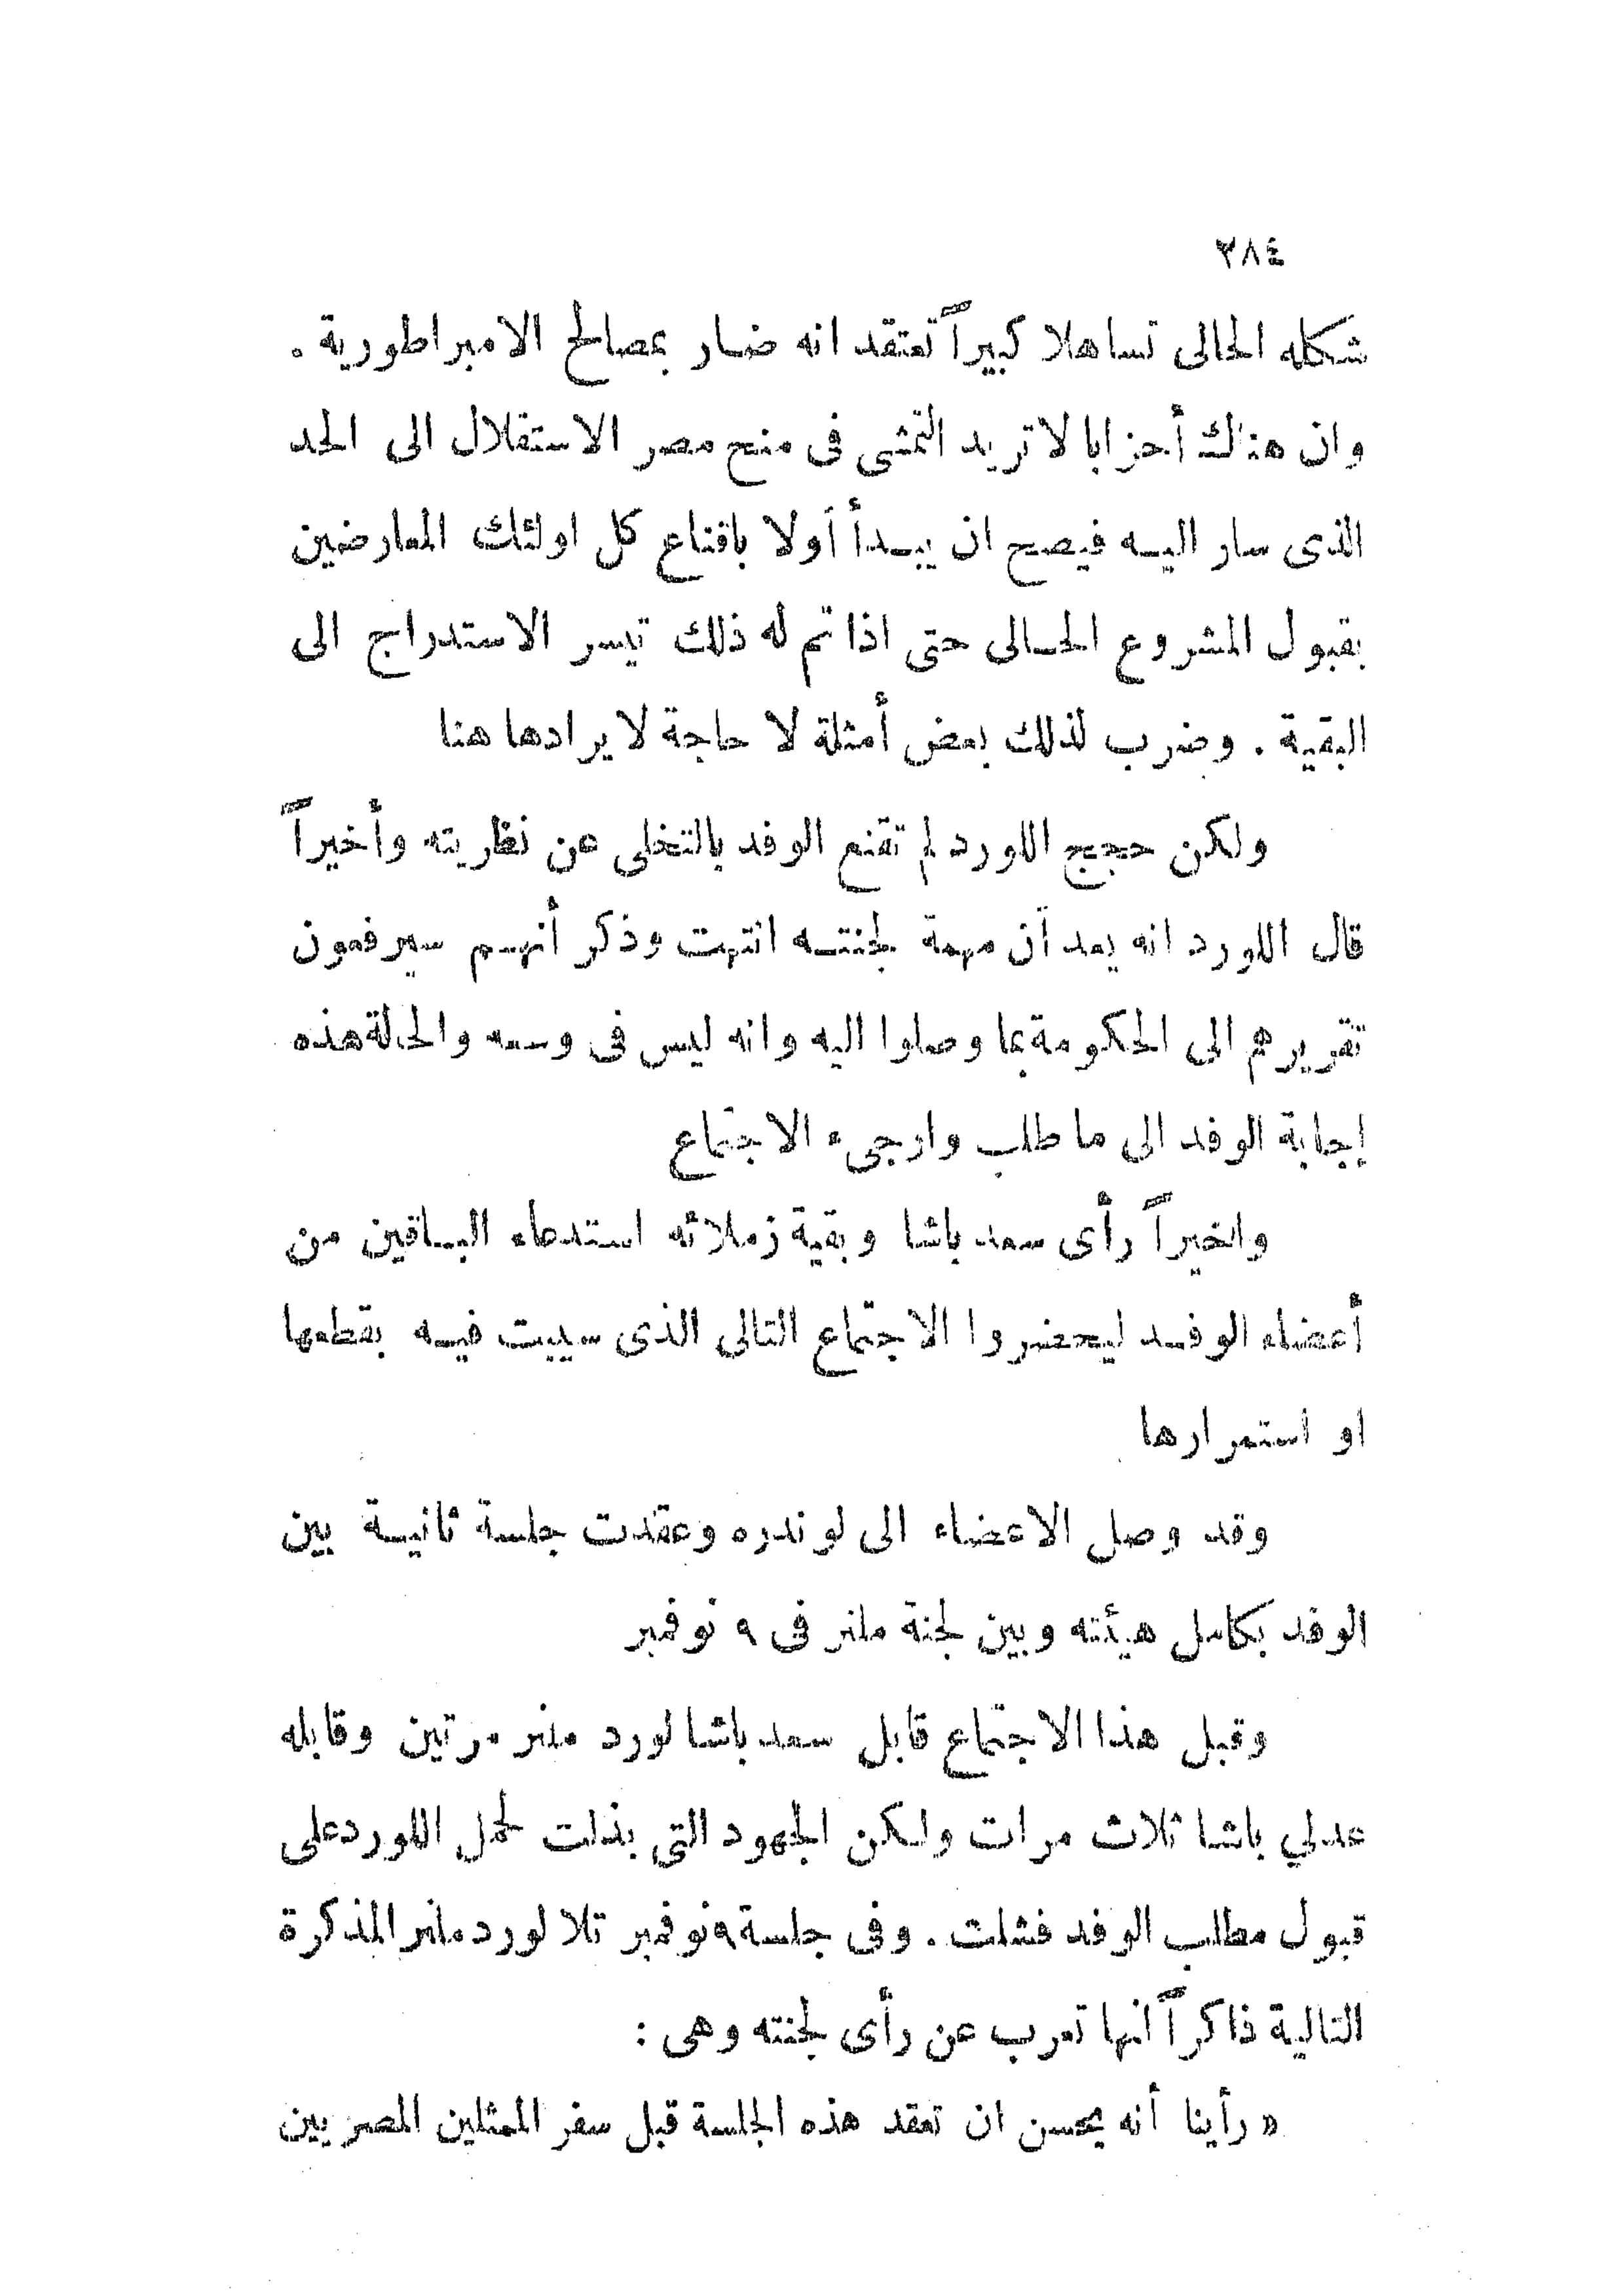 ٣٨٤
شكله الحالى تساهلا كبيراً تعتقد انه ضار بمصالح الامبراطورية .
وان هناك أحزابا لا تريد التمشى فى منح مصر الاستقلال الى الحد
الذى سار اليه فيصح ان يبدأ أولا باقناع كل اولئك المعارضين
بقبول المشروع الحالى حتى اذا تم له ذلك تيسر الاستدراج الى
البقية . وضرب لذلك بعض أمثلة لا حاجة لايرادها هنا
ولكن حجج اللورد لم تقنع الوفد بالتخلى عن نظريته وأخيراً
قال اللورد انه يعد أن مهمة لجنته انتهت وذكر أنهم سيرفعون
تقريرهم الى الحكومة بما وصلوا اليه وانه ليس فى وسعه والحالة هذه
إجابة الوفد الى ما طلب وارجىء الاجتماع
واخيراً رأى سعد باشا وبقية زملائه استدعاء الباقين من
أعضاء الوفد ليحضروا الاجتماع التالى الذى سيبت فيه بقطعها
او استمرارها
وقد وصل الاعضاء الى لوندره وعقدت جلسة ثانية بين
الوفد بكامل هيئته وبين لجنة ملنر فى ٩ نوفمبر
وقبل هذا الاجتماع قابل سعد باشا لورد ملنر مرتين وقابله
عدلي باشا ثلاث مرات ولكن الجهود التى بذلت لحمل اللورد على
قبول مطلب الوفد فشلت . وفى جلسة ٩ نوفمبر تلا لورد ملنر المذكرة
التالية ذاكراً انها تعرب عن رأى لجنته وهى :
« رأينا أنه يحسن ان تعقد هذه الجلسة قبل سفر الممثلين المصريين